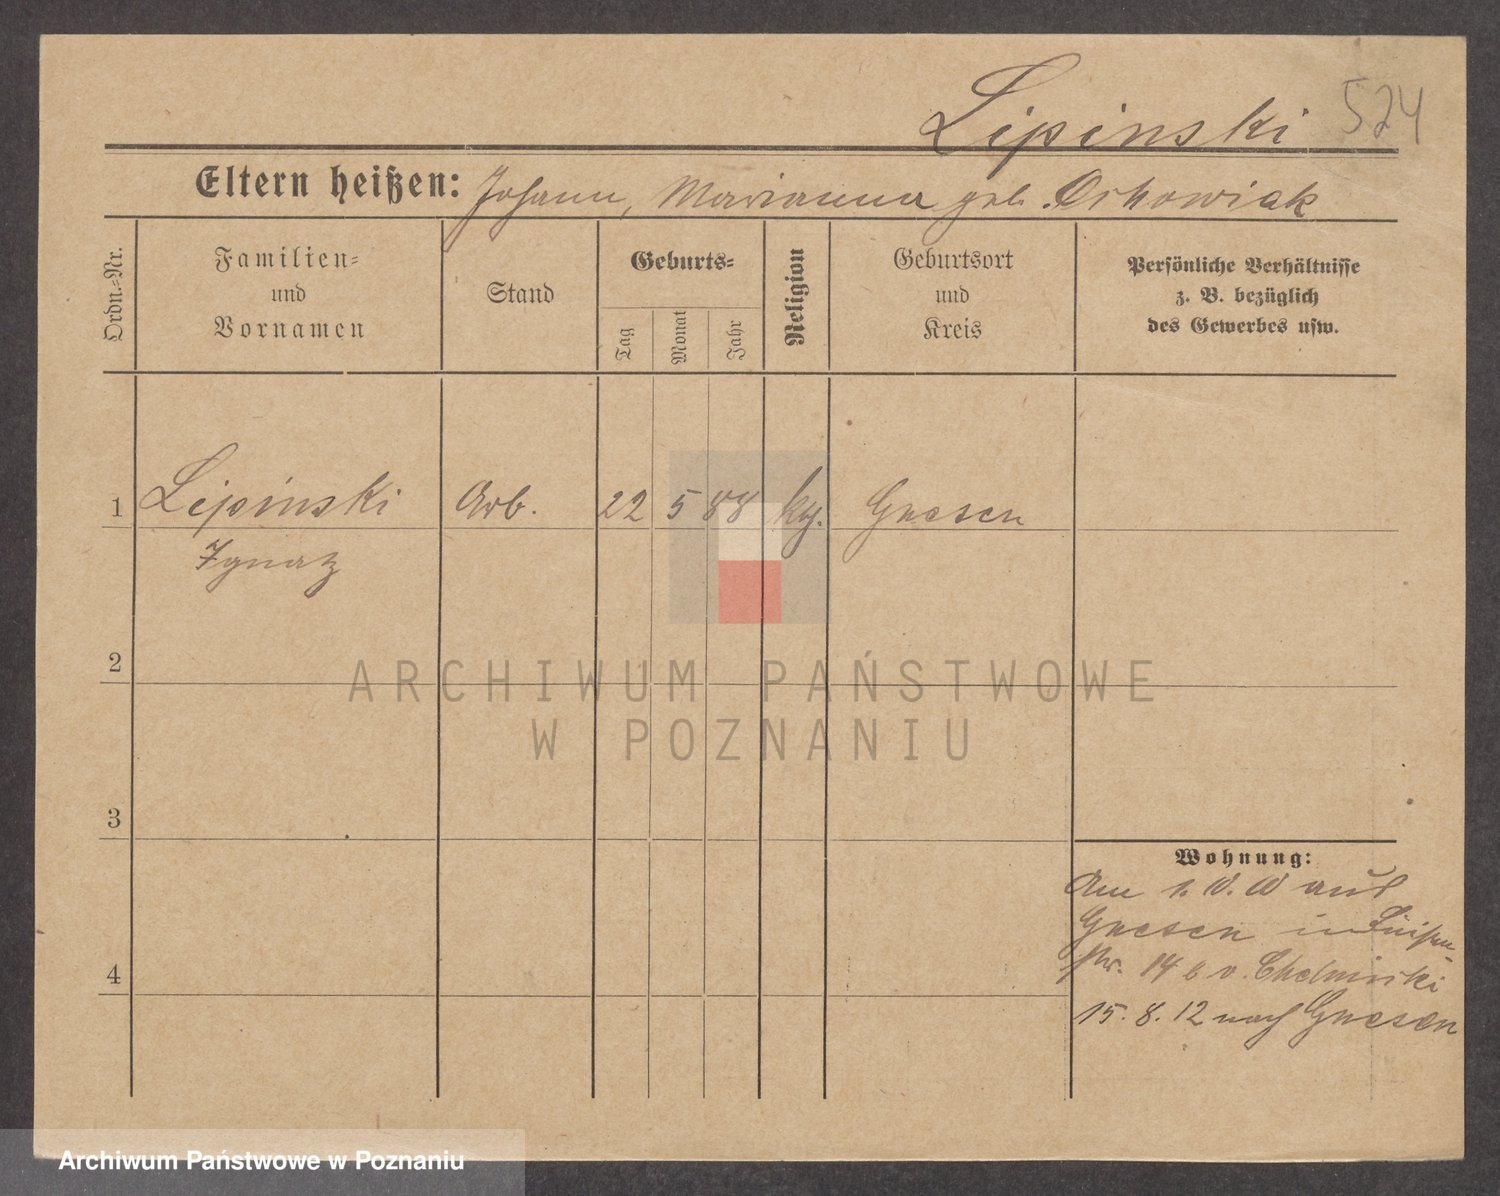 Lipinski 524
Eltern heißen: Johann, Marianna geb. Orhowiak
Ordn.-Nr.
Familien-
und
Vornamen
Stand
Geburts-
Tag
Monat
Jahr
Religion
Geburtsort
und
Kreis
Persönliche Verhältnisse
z. B. bezüglich
des Gewerbes usw.
1 Lipinski Arb. 22 5 88 kg. Gnesen
Ignatz
2
3
4
Wohnung:
Am aus
Gnesen in Luisen-
str. 14 b v. Chelminski
15. 8. 12 nach Gnesen
ARCHIWUM PAŃSTWOWE
W POZNANIU
Archiwum Państwowe w Poznaniu